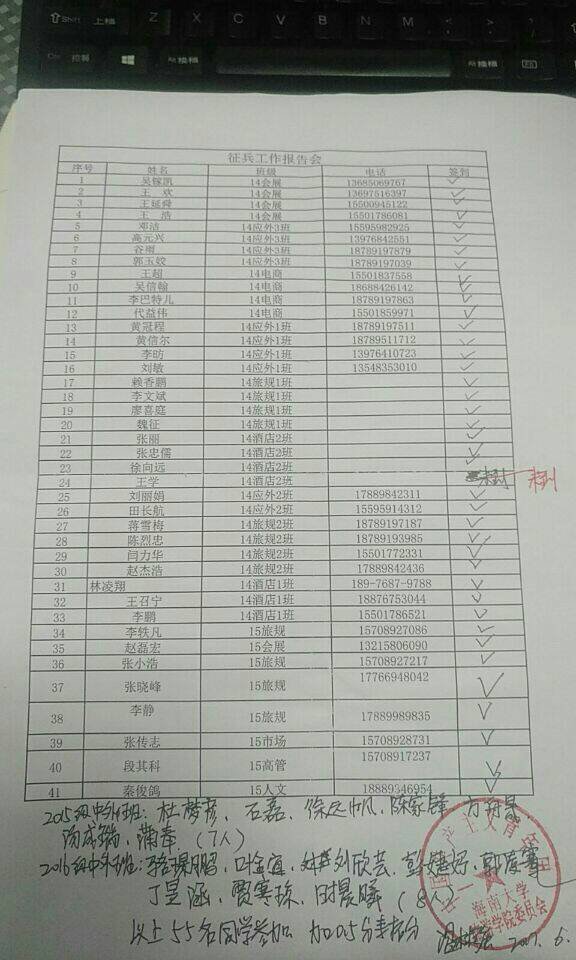 征兵工作报告会
序号 姓名 班级 电话 签到
1 吴稼凯 14会展 13685069767 ✓
2 王 欢 14会展 13697516397 ✓
3 王延舜 14会展 15500945122 ✓
4 王 浩 14会展 15501786081 ✓
5 邓洁 14应外3班 15595982925 ✓
6 高元兴 14应外3班 13976842551 ✓
7 谷雨 14应外3班 18789197879 ✓
8 郭玉姣 14应外3班 18789197039 ✓
9 王超 14电商 15501837558 ✓
10 吴信翰 14电商 18688426142 ✓
11 李巴特儿 14电商 18789197863 ✓
12 代益伟 14电商 15501859971 ✓
13 黄冠程 14应外1班 18789197511 ✓
14 黄信尔 14应外1班 18789511712 ✓
15 李昉 14应外1班 13976410723 ✓
16 刘敏 14应外1班 13548353010 ✓
17 赖香鹏 14旅规1班 ✓
18 李文斌 14旅规1班 ✓
19 廖喜庭 14旅规1班 ✓
20 魏征 14旅规1班 ✓
21 张丽 14酒店2班 ✓
22 张忠儒 14酒店2班 ✓
23 徐向远 14酒店2班 ✓
24 王学 14酒店2班 未到
25 刘丽娟 14应外2班 17889842311 ✓
26 田长航 14应外2班 15595914312 ✓
27 蒋雪梅 14旅规2班 18789197187 ✓
28 陈烈忠 14旅规2班 18789193985 ✓
29 闫力华 14旅规2班 15501772331 ✓
30 赵杰浩 14旅规2班 17889842436 ✓
31 林凌翔 14酒店1班 189-7687-9788 ✓
32 王召宁 14酒店1班 18876753044 ✓
33 李鹏 14酒店1班 15501786521 ✓
34 李轶凡 15旅规 15708927086 ✓
35 赵磊宏 15会展 13215806090 ✓
36 张小浩 15旅规 15708927217 ✓
37 张晓峰 15旅规 17766948042 ✓
38 李静 15旅规 17889989835 ✓
39 张传志 15市场 15708928731 ✓
40 段其科 15高管 15708917237 ✓
41 秦俊鸽 15人文 18889346954 ✓
2015级中外班: 杜梦彦、石磊、徐 帆、陈家锋、方
(7人)
2016级中外班: 鹏、 刘欣芸、
丁昱涵、贾寒琼、 (8人)
以上55名同学参加 加0.5分素拓分 2017.6.
海南大学
学院委员会